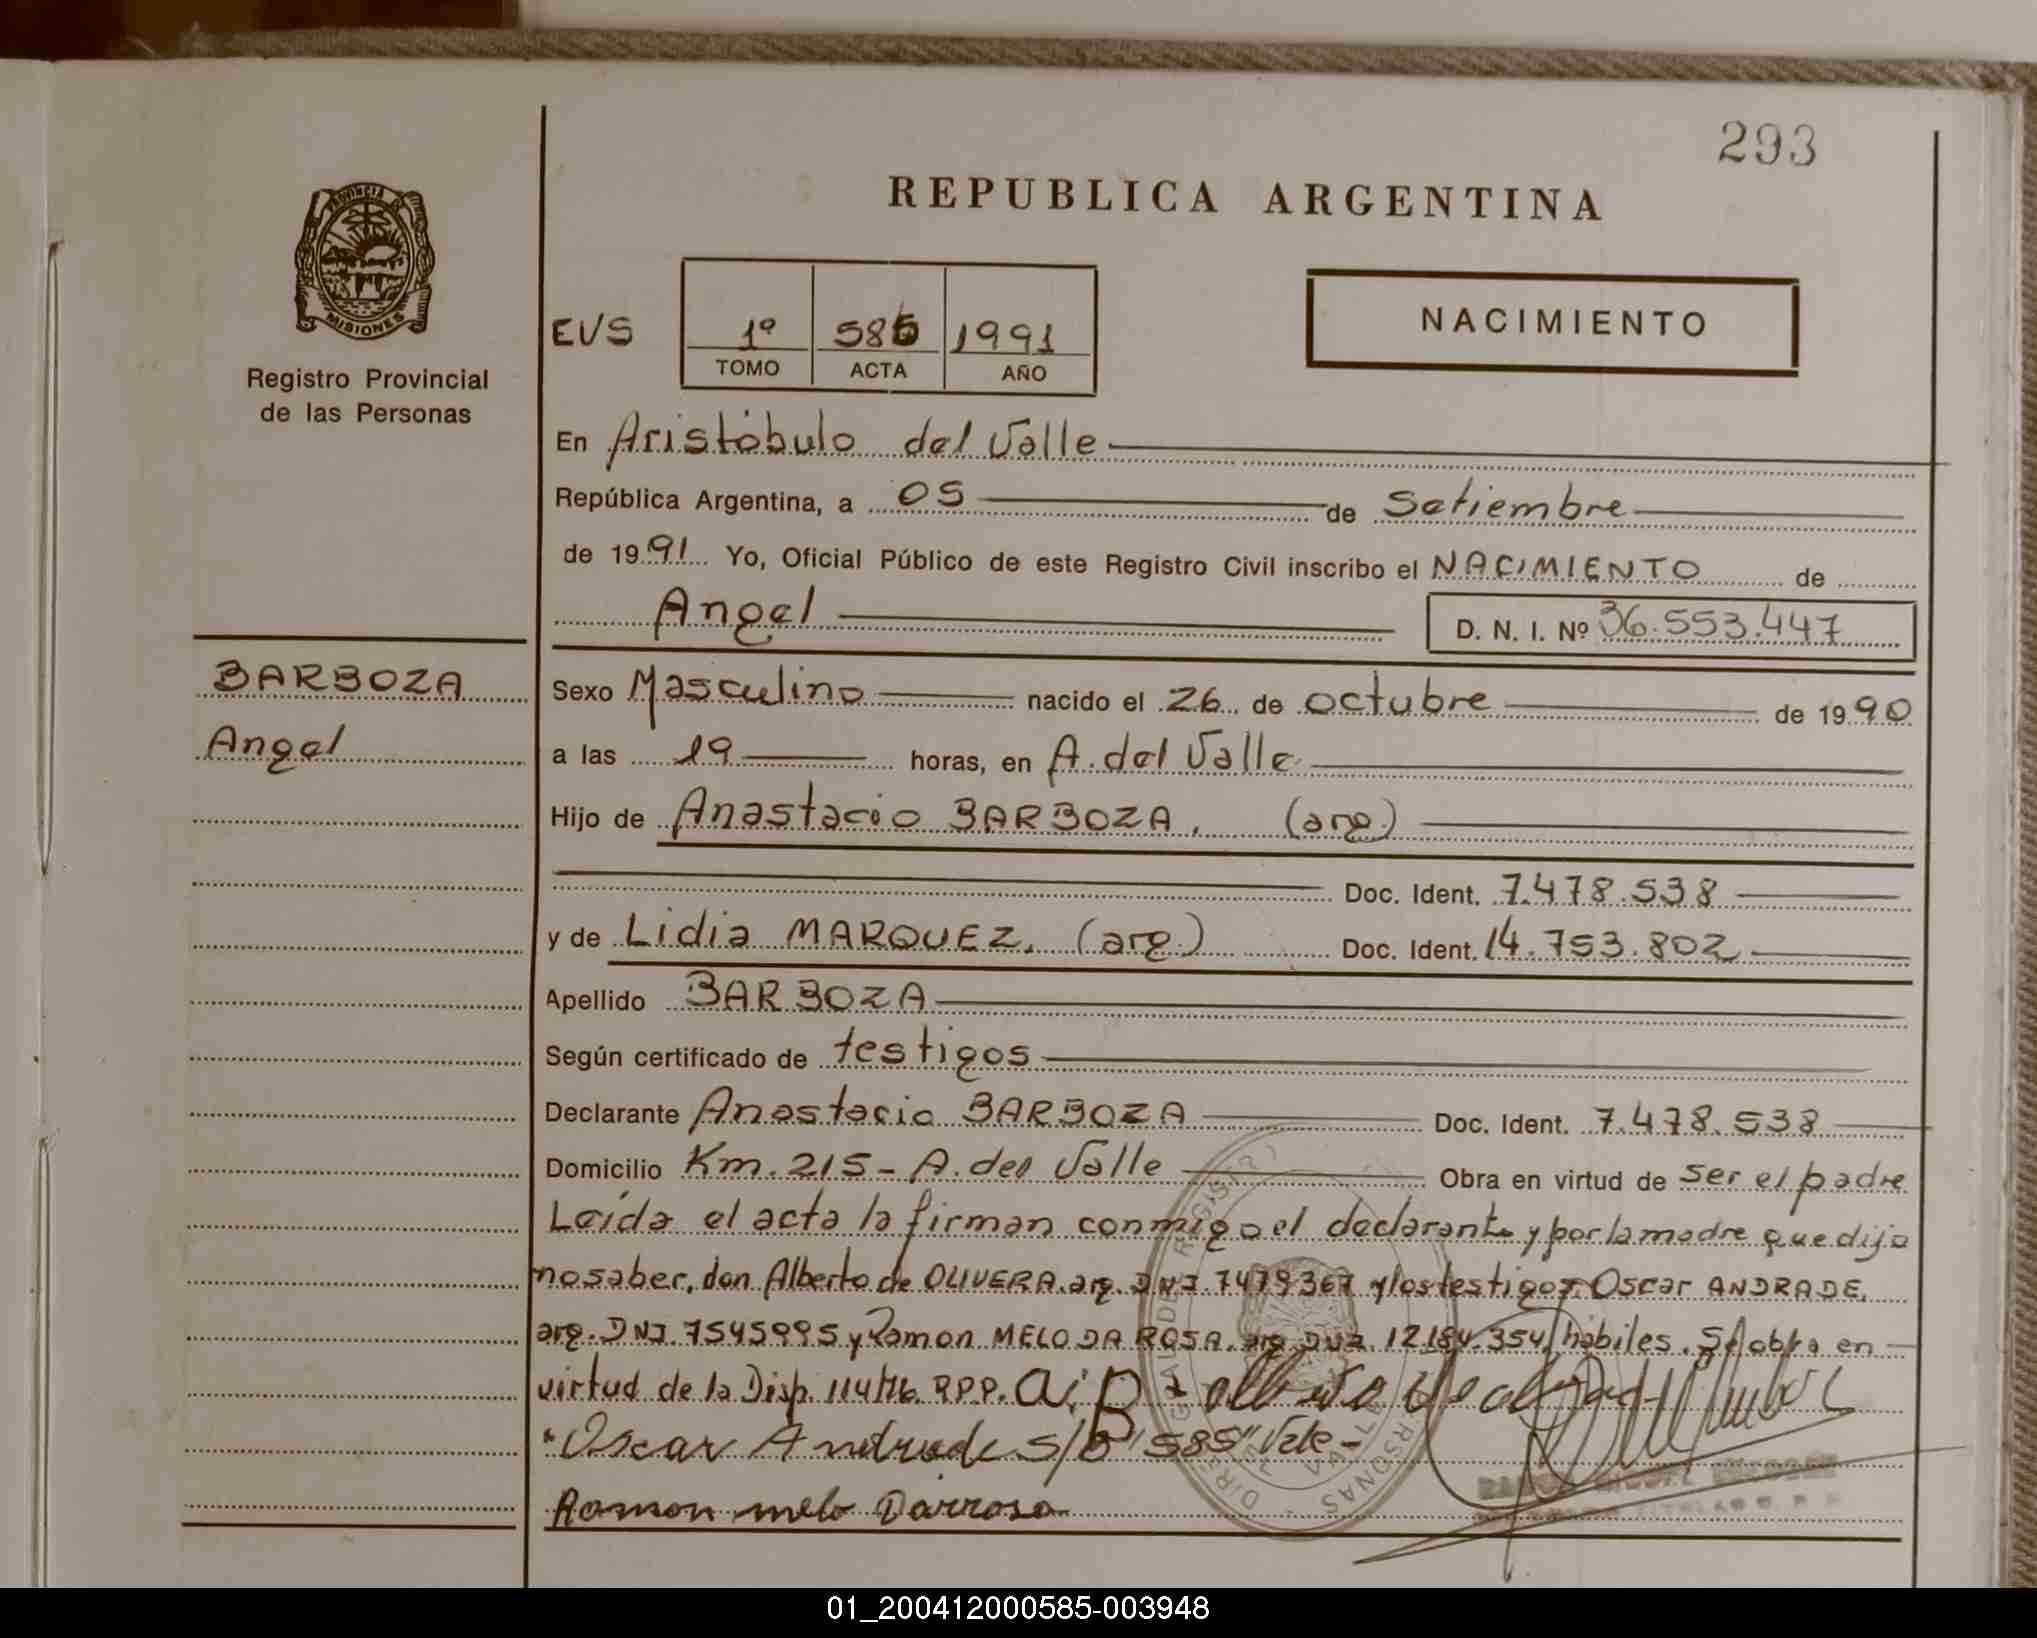 293
REPUBLICA ARGENTINA
PROVINCIA DE
MISIONES
Registro Provincial
de las Personas
EVS
1º 585 1991
TOMO ACTA AÑO
NACIMIENTO
En Aristóbulo del Valle
República Argentina, a 05 de Setiembre
de 1991 Yo, Oficial Público de este Registro Civil inscribo el NACIMIENTO de
Angel D. N. I. Nº 36.553.447
BARBOZA
Angel
Sexo Masculino nacido el 26 de octubre de 1990
a las 19 horas, en A. del Valle
Hijo de Anastacio BARBOZA, (arg.)
Doc. Ident. 7.478.538
y de Lidia MARQUEZ, (arg.) Doc. Ident. 14.753.802
Apellido BARBOZA
Según certificado de testigos
Declarante Anastacio BARBOZA Doc. Ident. 7.478.538
Domicilio Km. 215 - A. del Valle Obra en virtud de ser el padre
Leída el acta la firman conmigo el declarante y por la madre que dijo
no saber, don Alberto de OLIVERA. arg. DNI. 7479367 y los testigos Oscar ANDRADE,
arg. DNI. 7545995 y Ramon MELO DA ROSA. arg DNI. 12.184.354, hábiles. Se obra en
virtud de la Disp. 114/76. R.P.P.
Oscar Andrade S/B "585" Vale -
Ramon melo Darrosa
01_200412000585-003948